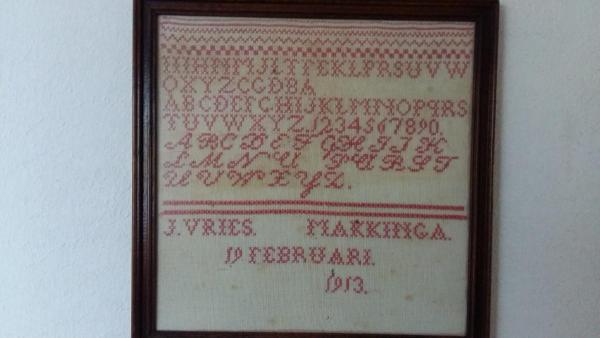 HIHNMJLTFEKLPRSUVW
OXYZCGDBA
ABCDEFGHIJKLMNOPQRS
TUVWXYZ.1234567890.
ABCDEFGHIJK
LMNOPQRST
UVWXYZ.
J.VRIES. MAKKINGA.
19 FEBRUARI.
1913.